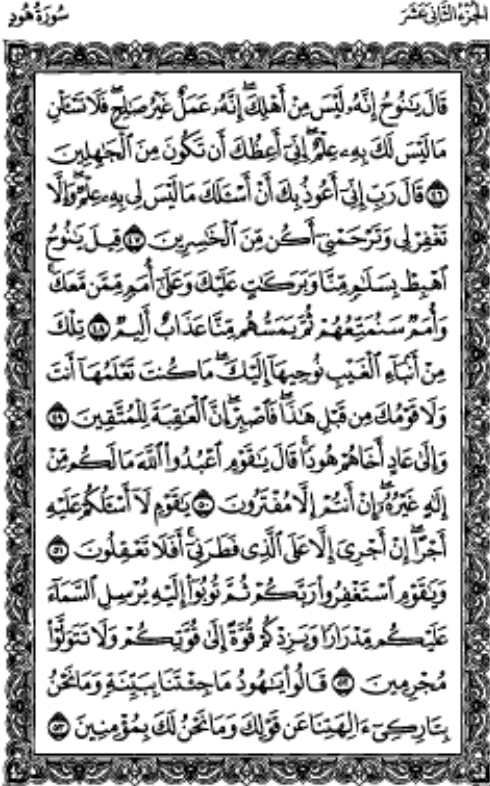 الجزء الثاني عشر
سورة هود
قَالَ يَٰنُوحُ إِنَّهُۥ لَيْسَ مِنْ أَهْلِكَ ۖ إِنَّهُۥ عَمَلٌ غَيْرُ صَٰلِحٍ ۖ فَلَا تَسْـَٔلْنِ
مَا لَيْسَ لَكَ بِهِۦ عِلْمٌ ۖ إِنِّىٓ أَعِظُكَ أَن تَكُونَ مِنَ ٱلْجَٰهِلِينَ
٤٦ قَالَ رَبِّ إِنِّىٓ أَعُوذُ بِكَ أَنْ أَسْـَٔلَكَ مَا لَيْسَ لِى بِهِۦ عِلْمٌ ۖ وَإِلَّا
تَغْفِرْ لِى وَتَرْحَمْنِىٓ أَكُن مِّنَ ٱلْخَٰسِرِينَ ٤٧ قِيلَ يَٰنُوحُ
ٱهْبِطْ بِسَلَٰمٍ مِّنَّا وَبَرَكَٰتٍ عَلَيْكَ وَعَلَىٰٓ أُمَمٍ مِّمَّن مَّعَكَ ۚ
وَأُمَمٌ سَنُمَتِّعُهُمْ ثُمَّ يَمَسُّهُم مِّنَّا عَذَابٌ أَلِيمٌ ٤٨ تِلْكَ
مِنْ أَنۢبَآءِ ٱلْغَيْبِ نُوحِيهَآ إِلَيْكَ ۖ مَا كُنتَ تَعْلَمُهَآ أَنتَ
وَلَا قَوْمُكَ مِن قَبْلِ هَٰذَا ۖ فَٱصْبِرْ ۖ إِنَّ ٱلْعَٰقِبَةَ لِلْمُتَّقِينَ ٤٩
وَإِلَىٰ عَادٍ أَخَاهُمْ هُودًا ۚ قَالَ يَٰقَوْمِ ٱعْبُدُوا۟ ٱللَّهَ مَا لَكُم مِّنْ
إِلَٰهٍ غَيْرُهُۥٓ ۖ إِنْ أَنتُمْ إِلَّا مُفْتَرُونَ ٥٠ يَٰقَوْمِ لَآ أَسْـَٔلُكُمْ عَلَيْهِ
أَجْرًا ۖ إِنْ أَجْرِىَ إِلَّا عَلَى ٱلَّذِى فَطَرَنِىٓ ۚ أَفَلَا تَعْقِلُونَ ٥١
وَيَٰقَوْمِ ٱسْتَغْفِرُوا۟ رَبَّكُمْ ثُمَّ تُوبُوٓا۟ إِلَيْهِ يُرْسِلِ ٱلسَّمَآءَ
عَلَيْكُم مِّدْرَارًا وَيَزِدْكُمْ قُوَّةً إِلَىٰ قُوَّتِكُمْ وَلَا تَتَوَلَّوْا۟
مُجْرِمِينَ ٥٢ قَالُوا۟ يَٰهُودُ مَا جِئْتَنَا بِبَيِّنَةٍ وَمَا نَحْنُ
بِتَارِكِىٓ ءَالِهَتِنَا عَن قَوْلِكَ وَمَا نَحْنُ لَكَ بِمُؤْمِنِينَ ٥٣